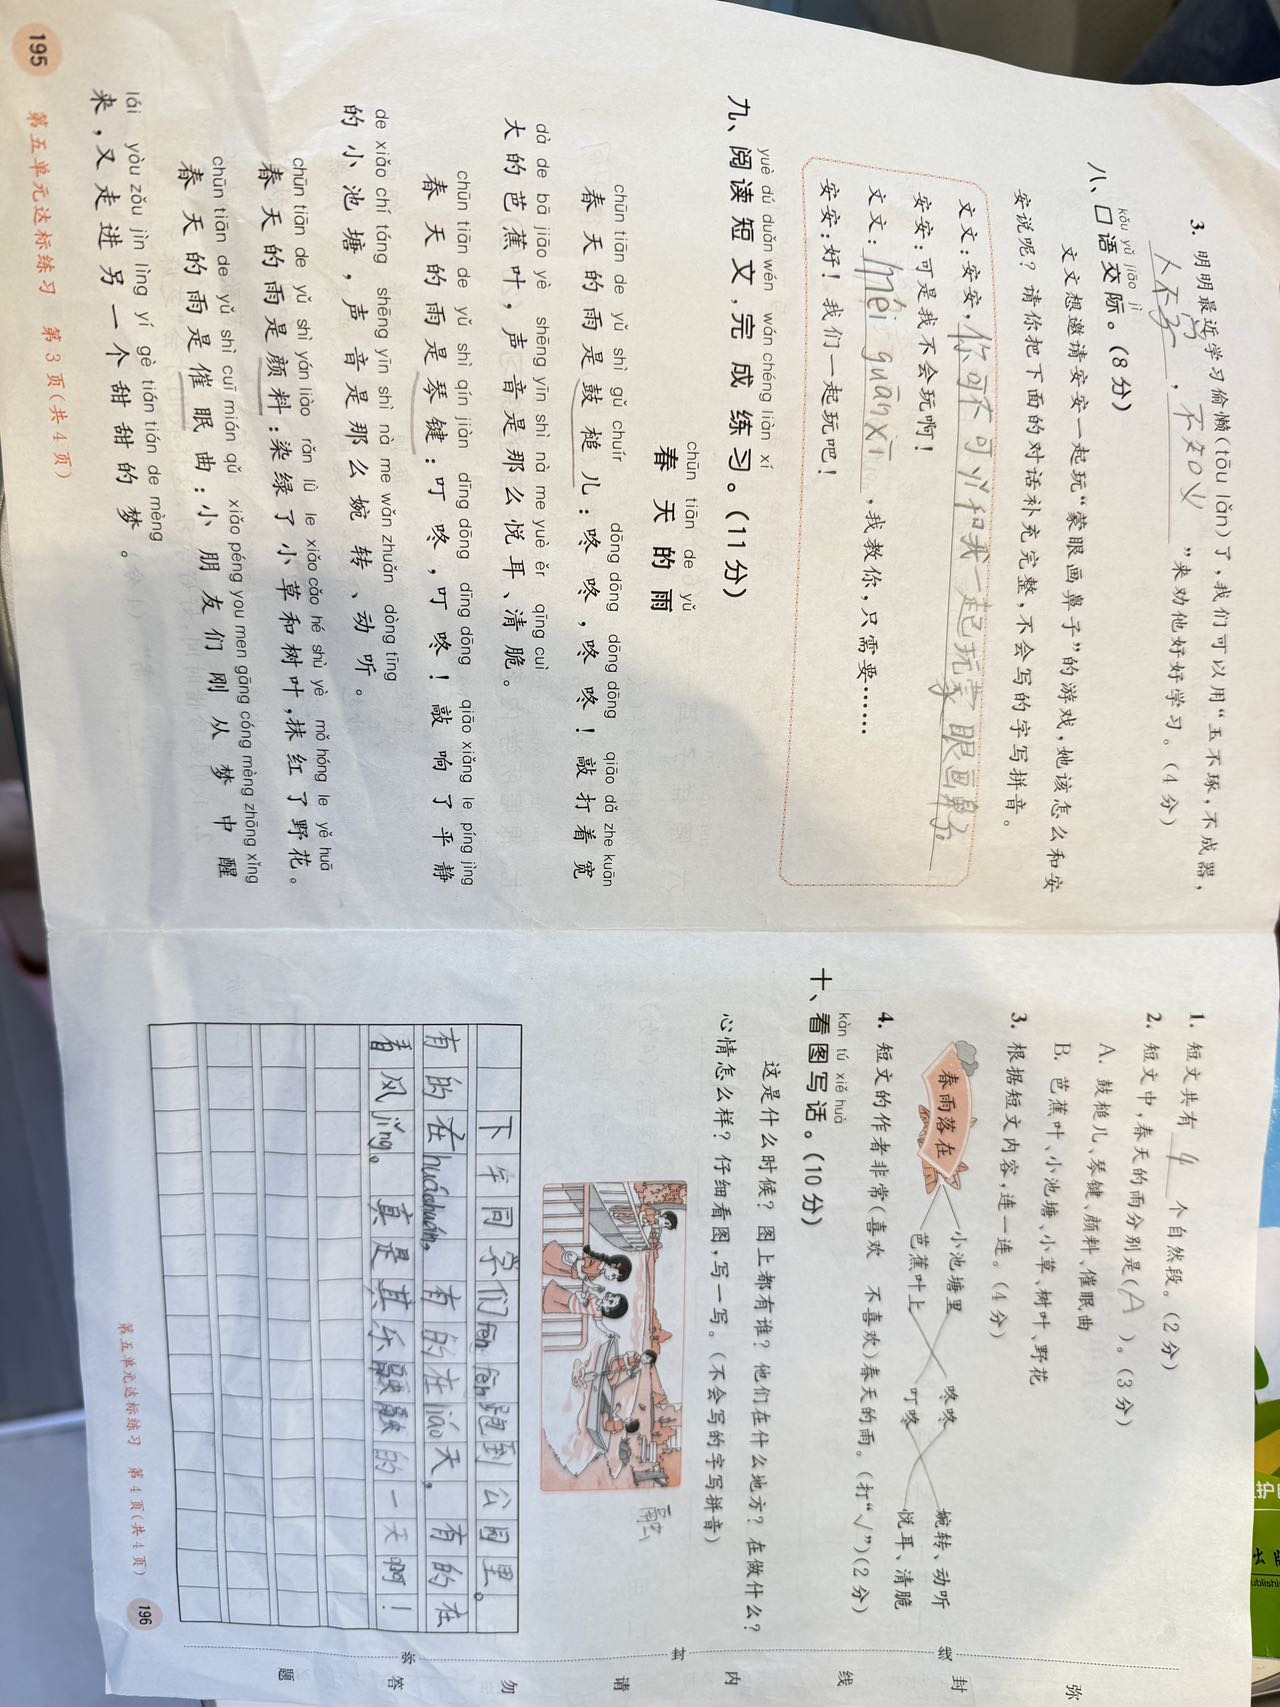 3. 明明最近学习偷懒(tōu lǎn)了,我们可以用“玉不琢,不成器,
人不学,不知义”来劝他好好学习。(4分)
kǒu yǔ jiāo jì
八、口语交际。(8分)
文文想邀请安安一起玩“蒙眼画鼻子”的游戏,她该怎么和安
安说呢?请你把下面的对话补充完整,不会写的字写拼音。
文文:安安,你可不可以和我一起玩蒙眼画鼻子。
安安:可是我不会玩啊!
文文:méi guān xī,我教你,只需要……
安安:好!我们一起玩吧!
yuè dú duǎn wén wán chéng liàn xí
九、阅读短文,完成练习。(11分)
chūn tiān de yǔ
春天的雨
chūn tiān de yǔ shì gǔ chuír dōng dōng dōng dōng qiāo dǎ zhe kuān
春天的雨是鼓槌儿:咚咚,咚咚!敲打着宽
dà de bā jiāo yè shēng yīn shì nà me yuè ěr qīng cuì
大的芭蕉叶,声音是那么悦耳、清脆。
chūn tiān de yǔ shì qín jiàn dīng dōng dīng dōng qiāo xiǎng le píng jìng
春天的雨是琴键:叮咚,叮咚!敲响了平静
de xiǎo chí táng shēng yīn shì nà me wǎn zhuǎn dòng tīng
的小池塘,声音是那么婉转、动听。
chūn tiān de yǔ shì yán liào rǎn lǜ le xiǎo cǎo hé shù yè mǒ hóng le yě huā
春天的雨是颜料:染绿了小草和树叶,抹红了野花。
chūn tiān de yǔ shì cuī mián qǔ xiǎo péng you men gāng cóng mèng zhōng xǐng
春天的雨是催眠曲:小朋友们刚从梦中醒
lái yòu zǒu jìn lìng yí gè tián tián de mèng
来,又走进另一个甜甜的梦。
195 第五单元达标练习 第3页(共4页)
1. 短文共有 4 个自然段。(2分)
2. 短文中,春天的雨分别是(A)。(3分)
A. 鼓槌儿、琴键、颜料、催眠曲
B. 芭蕉叶、小池塘、小草、树叶、野花
3. 根据短文内容,连一连。(4分)
小池塘里 咚咚 婉转、动听
春雨落在
芭蕉叶上 叮咚 悦耳、清脆
4. 短文的作者非常(喜欢 不喜欢)春天的雨。(打“√”)(2分)
kàn tú xiě huà
十、看图写话。(10分)
这是什么时候?图上都有谁?他们在什么地方?在做什么?
心情怎么样?仔细看图,写一写。(不会写的字写拼音)
下午同学们fēn fēn跑到公园里。
有的在huáchuán,有的在liáo天,有的在
看风jǐng。真是其乐融融的一天啊!
第五单元达标练习 第4页(共4页) 196
弥
封
线
内
请
勿
答
题
密
封